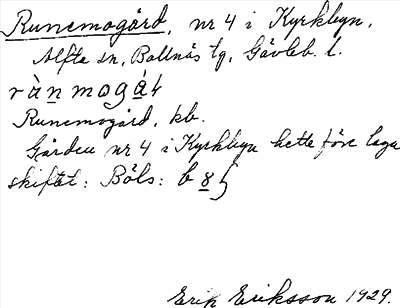 Runemogård, nr 4 i Kyrkbyn,
Alfta sn, Bollnäs tg, Gävleb. l.
rànmogá
Runemogård, kb.
Gården nr 4 i Kyrkbyn hette före laga
skiftet: Böls: b
Erik Eriksson 1929.